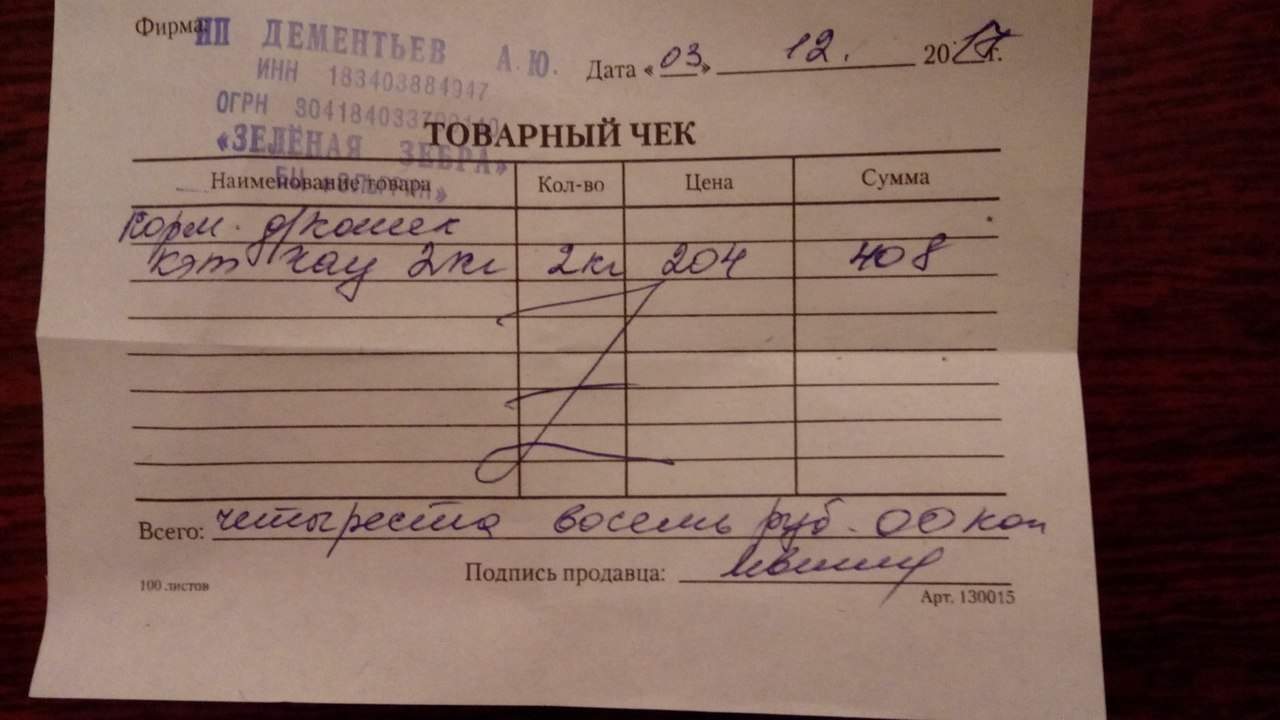 Фирма: ИП ДЕМЕНТЬЕВ А.Ю.
Дата «03» 12. 2017г.
ИНН 183403884947
ОГРН
ТОВАРНЫЙ ЧЕК
«ЗЕЛЁНАЯ ЗЕБРА»
Наименование товара Кол-во Цена Сумма
Корм. д/кошек
Кэт Чау 2кг 2кг 204 408
Всего: четыреста восемь руб. 00 коп
Подпись продавца:
100 листов
Арт. 130015